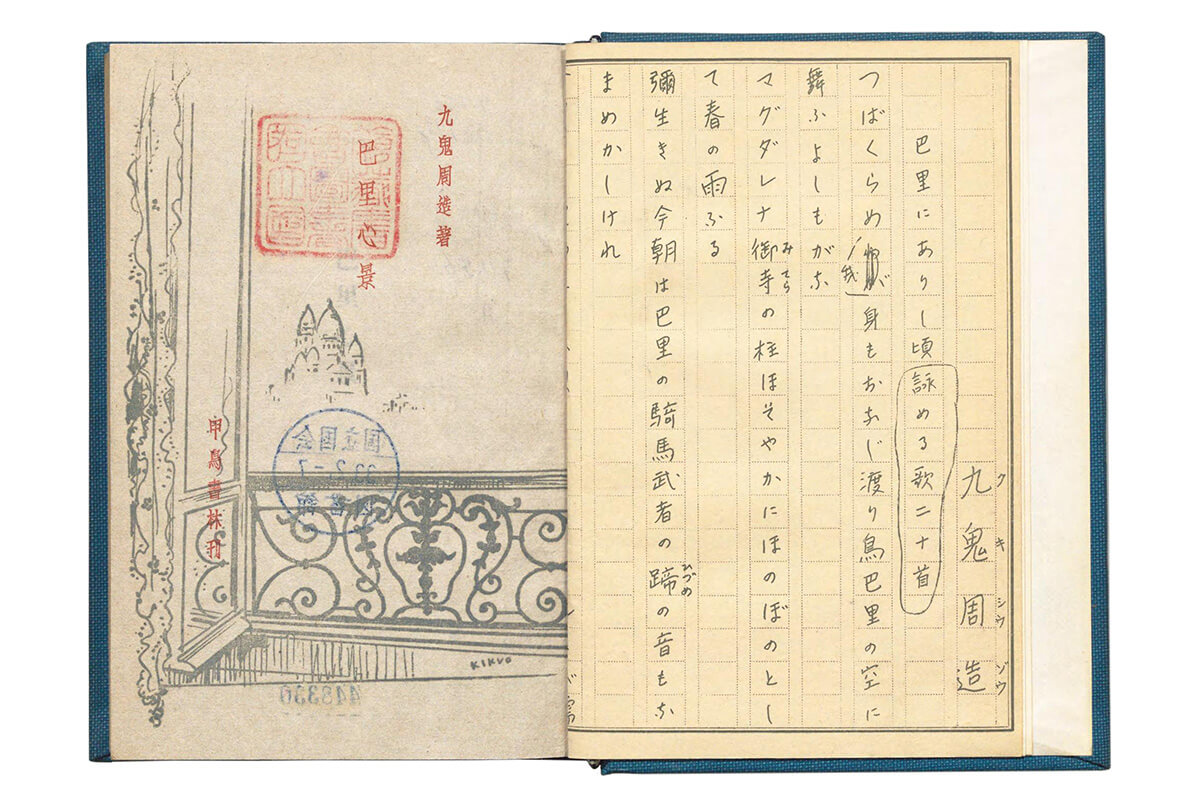 クキシウゾウ
九鬼周造
巴里にありし頃詠める歌二十首
つばくらめ我が身もおなじ渡り鳥巴里の空に
舞ふよしもがな
みてら
マグダレナ御寺の柱ほそやかにほのぼのとし
て春の雨ふる
ひづめ
彌生きぬ今朝は巴里の騎馬武者の蹄の音もな
まめかしけれ
九鬼周造著
巴里心景
甲鳥書林刊
KIKUO
国立国会
33.2-7
448330